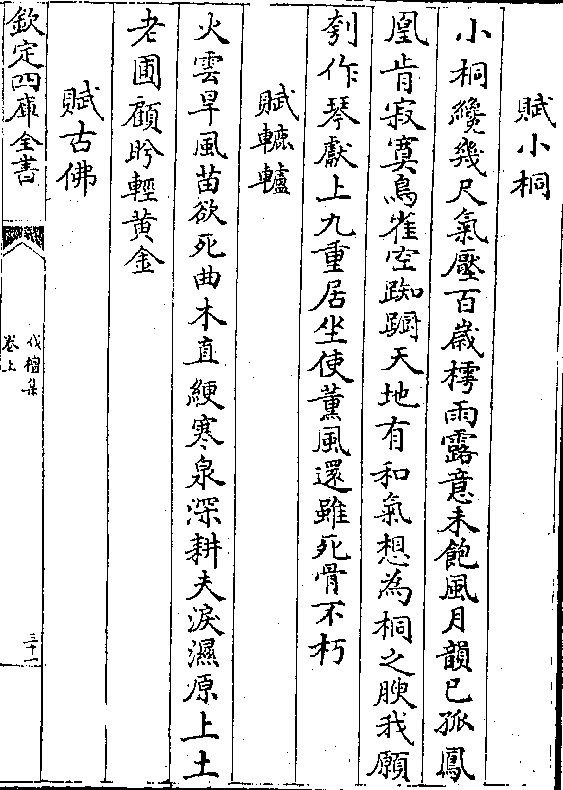 賦小桐
小桐纔幾尺氣壓百歳樗雨露意未飽風月韻已孤鳳
凰肯寂寞鳥雀空踟躕天地有和氣想為桐之腴我願
刳作琴獻上九重居坐使薰風還雖死骨不朽
賦轆轤
火雲旱風苗欲死曲木直綆寒泉深耕夫淚濕原上土
老圃顧盼輕黄金
賦古佛
欽定四庫全書
伐檀集
卷上
三十一